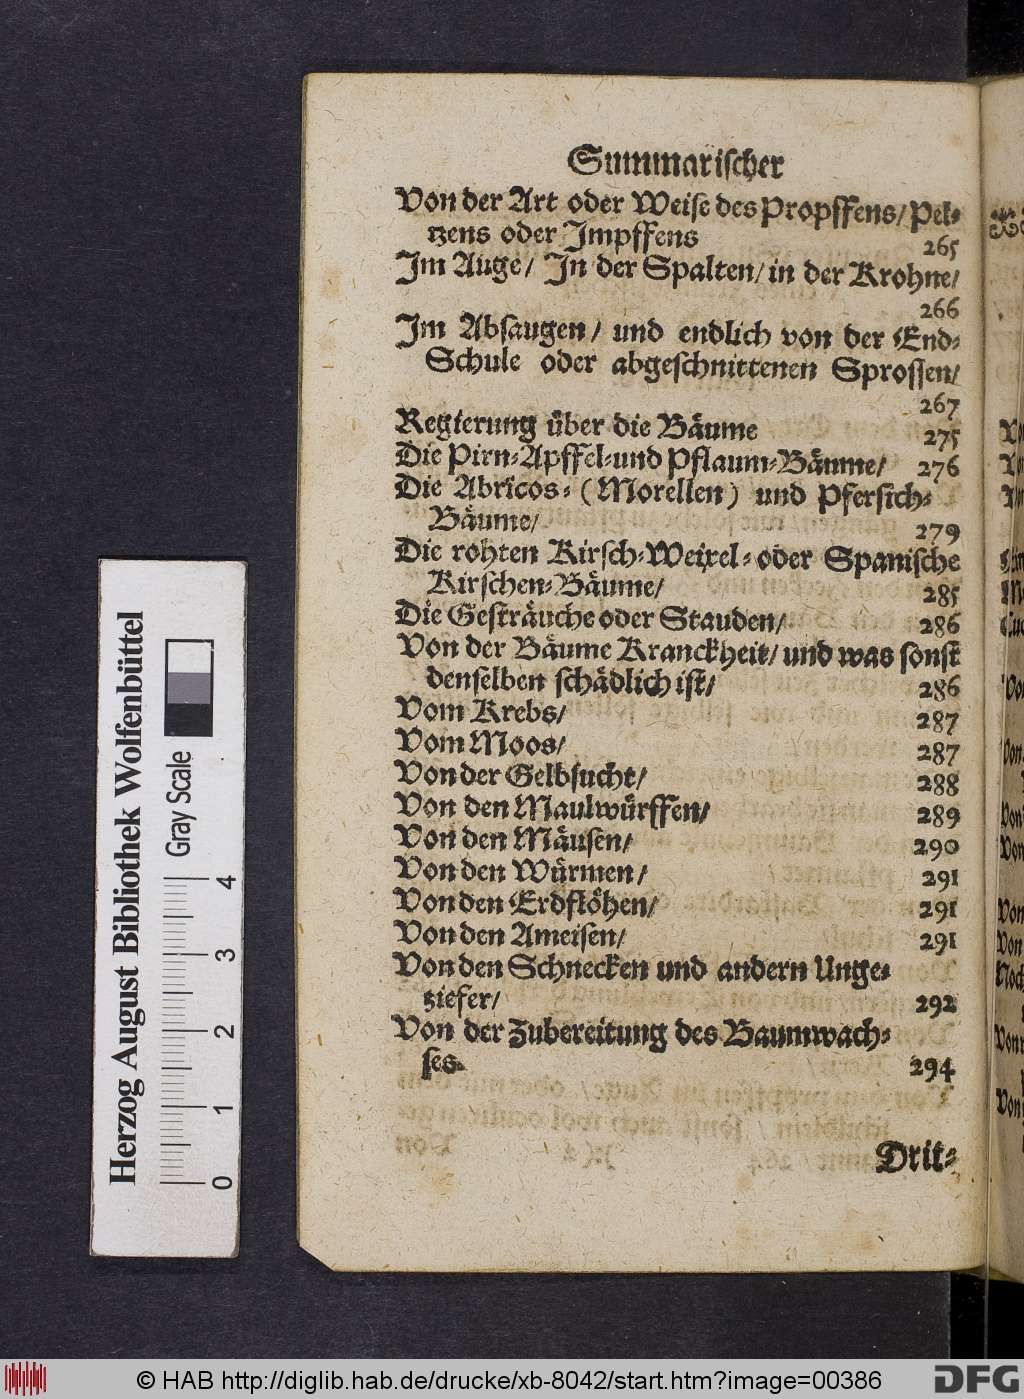 Summarischer
Von der Art oder Weise des Propffens/ Pel-
tzens oder Impffens 265
Im Auge/ In der Spalten/ in der Krohne/
266
Im Absaugen/ und endlich von der End-
Schule oder abgeschnittenen Sprossen/
267
Regierung über die Bäume 275
Die Pirn-Apffel-und Pflaum-Bäume/ 276
Die Abricos- (Morellen) und Pfersich-
Bäume/ 279
Die rohten Kirsch-Weixel- oder Spanische
Kirschen-Bäume/ 285
Die Gesträuche oder Stauden/ 286
Von der Bäume Kranckheit/ und was sonst
denselben schädlich ist/ 286
Vom Krebs/ 287
Vom Moos/ 287
Von der Gelbsucht/ 288
Von den Maulwürffen/ 289
Von den Mäusen/ 290
Von den Würmen/ 291
Von den Erdflöhen/ 291
Von den Ameisen/ 291
Von den Schnecken und andern Unge-
ziefer/ 292
Von der Zubereitung des Baumwach-
ses. 294
Drit-
Herzog August Bibliothek Wolfenbüttel
Gray Scale
0 1 2 3 4
© HAB http://diglib.hab.de/drucke/xb-8042/start.htm?image=00386
DFG